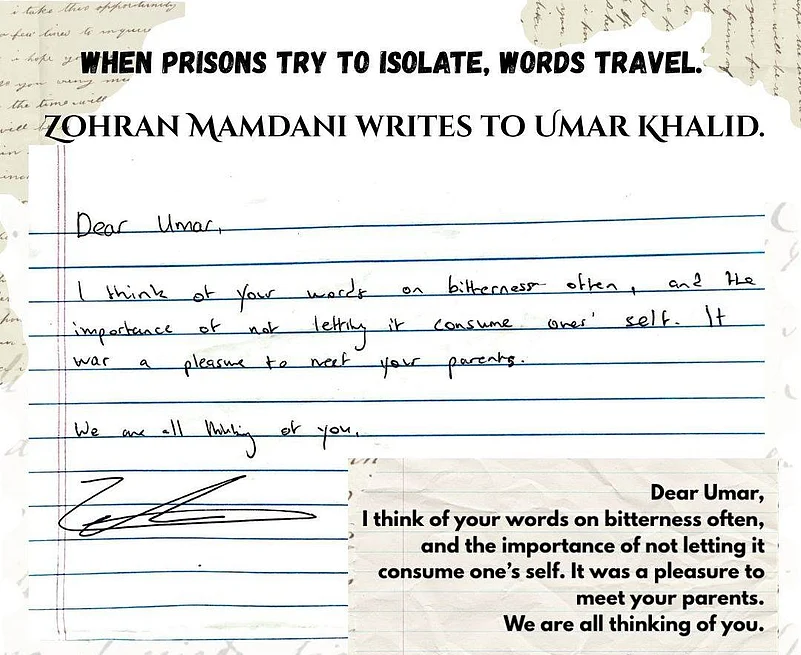 WHEN PRISONS TRY TO ISOLATE, WORDS TRAVEL.
ZOHRAN MAMDANI WRITES TO UMAR KHALID.
Dear Umar,
I think of your words on bitterness often, and the
importance of not letting it consume ones' self. It
was a pleasure to meet your parents.
We are all thinking of you.
Dear Umar,
I think of your words on bitterness often,
and the importance of not letting it
consume one's self. It was a pleasure to
meet your parents.
We are all thinking of you.